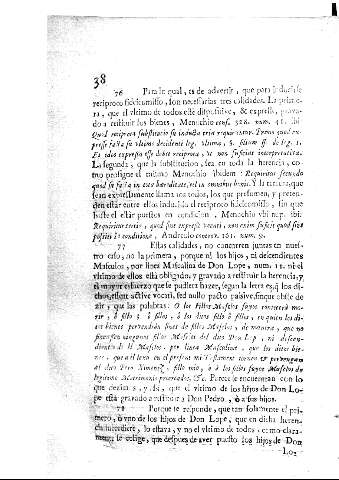 38
76 Para lo qual, es de advertir, que para inducirse
reciproco fideicomisso, son necessarias tres calidades. La prime-
ra, que el vltimo de todos esté dispositivè, & expressè, grava-
do a restituir los bienes, Menochio cons. 328. num. 41. ibi
Quod reciproca substitutio sit inducta tria requiruntur. Primo quod ex-
presse facta sit vltimo decidenti leg. vltima, §. filium ff. de leg. 1.
Et ideo expressa esse debet reciproca, & non sufficit interpretativa.
La segunda, que la substitucion sea en toda la herencia, co-
mo prosigue el mismo Menochio ibidem: Requiritur secundo
quod sit facta in tota hæreditate, vel in omnibus bonis. Y la tercera, que
sean expressamente llamados todos, los que presumen, y preten-
den estàr entre ellos inducido el reciproco fideicomisso, sin que
baste el estàr puestos en condicion. Menochio vbi sup. ibi:
Requiritur tertio, quod sint expresse vocati, non enim sufficit quod sint
positi in conditione, Andreolo controv. 161. num. 9.
77 Estas calidades, no concurren juntas en nuestro
caso, no la primera, porque ni los hijos, ni descendientes
Masculos, por linea Masculina de Don Lope, num. 12. ni el
vltimo de ellos està obligado, y gravado a restituir la herencia, y
el mayor esfuerço que le pudiera hazer, segun la letra es, q̃ los di-
chos, esten active vocati, sed nullo pacto passive, sin que obste de-
zir, que las palabras: O los Fillos Masculos sens contraer mo-
rir, ò fillo, ò fillos, ò los dits fillo ò fillos, en quien los di-
tos bienes pervendràn sines de fillos Masculos, de manera, que no
fincassen ningunos fillos Masculos del dito Don Lop, ni descen-
dientes de el Masculos, por linea Masculina, que los ditos bie-
nes, que a el lexo en el present mi Testament tornen & pervengan
al dito Pero Ximenez, fillo mio, ò à los suyos fillos Masculos de
legitimo Matrimonio procreados, &c. Parece se encuentran con lo
que dezimos, y es, que el vltimo de los hijos de Don Lo-
pe està gravado a restituir a Don Pedro, ò a sus hijos.
78 Porque se responde, que tan solamente el pri-
mero, ò vno de los hijos de Don Lope, que en dicha heren-
cia sucediere, lo estava, y no el vltimo de todos: como clara-
mente se colige, que despues de aver puesto los hijos de Don
Lo-